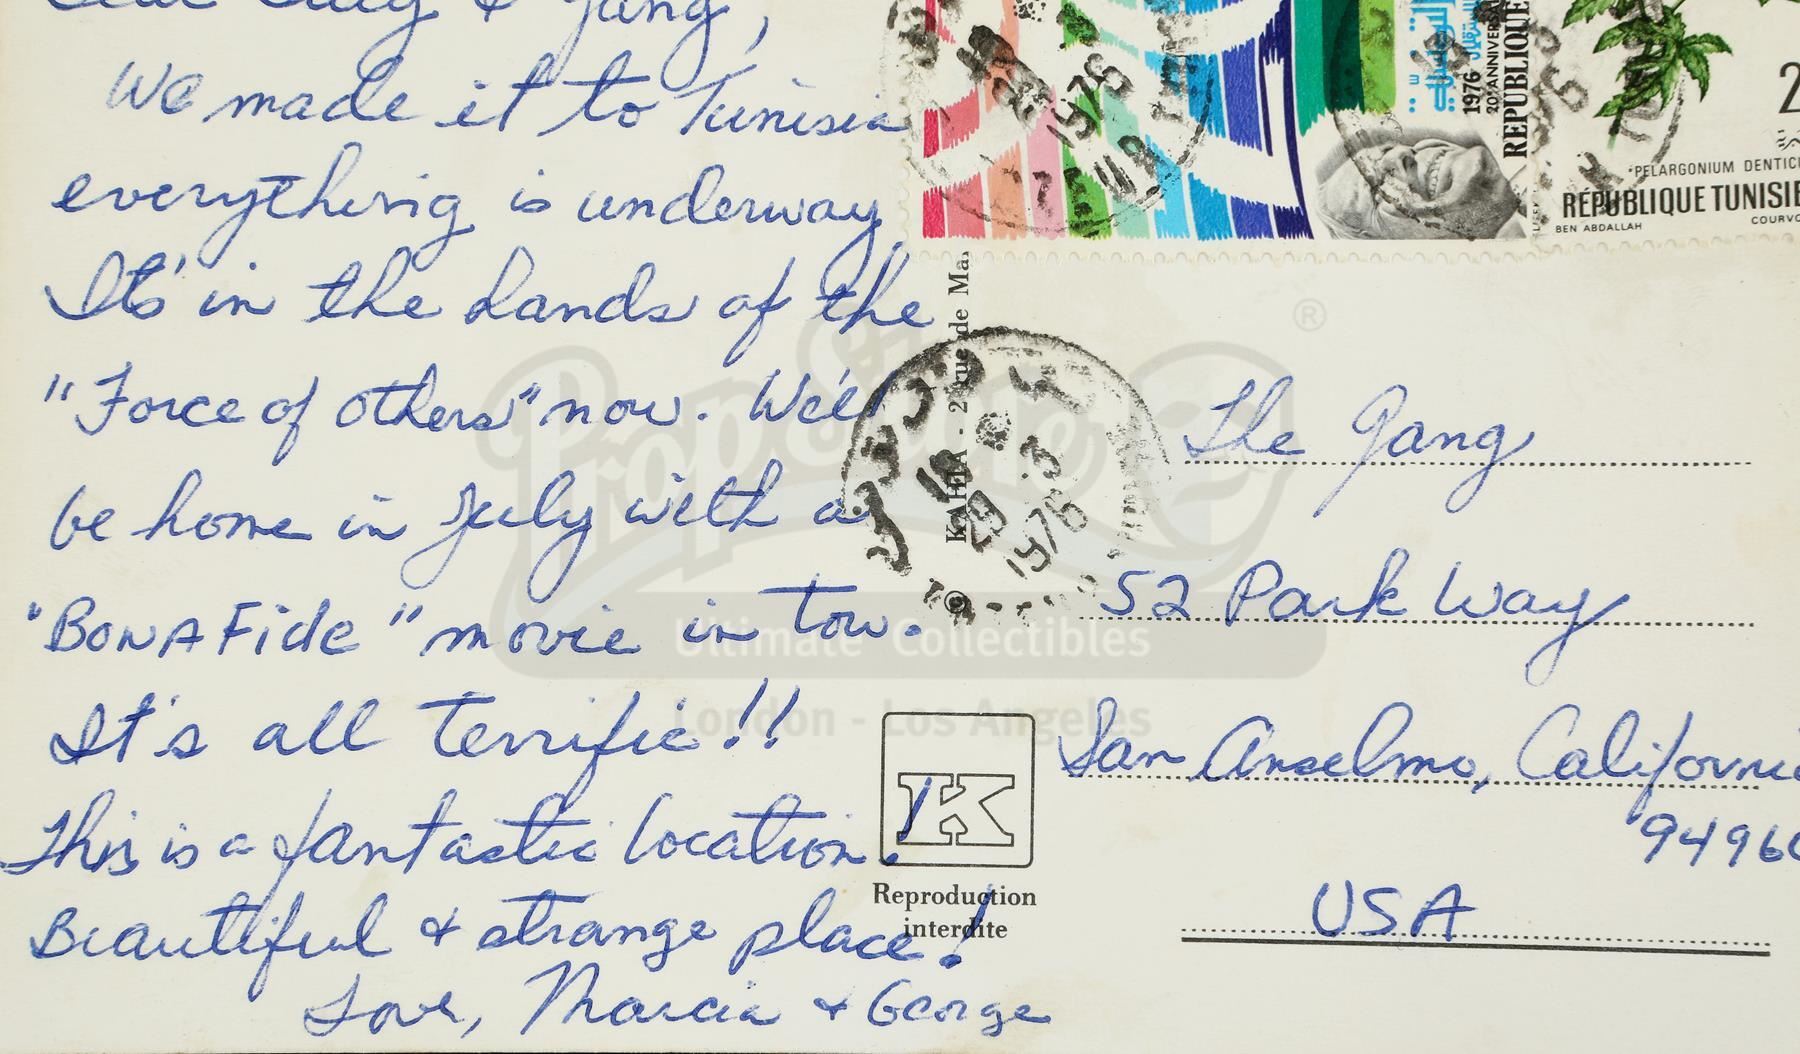 Dear Lucy & Gang,
We made it to Tunisia
everything is underway
It's in the hands of the
"Force of others" now. We'll
be home in July with a
"BONA Fide" movie in tow.
It's all terrific!!
This is a fantastic location!
Beautiful & strange place!
Love, Marcia & George
1976
20e ANNIVERSA
REPUBLIQUE
2
PELARGONIUM DENTIC
RÉPUBLIQUE TUNISIE
BEN ABDALLAH
COURVO
1976
KAHIA - 2 rue de Ma
29 3
1976
The Gang
52 Park Way
San Anselmo, California
94960
USA
K
Reproduction
interdite
PropStore
®
Ultimate Collectibles
London - Los Angeles